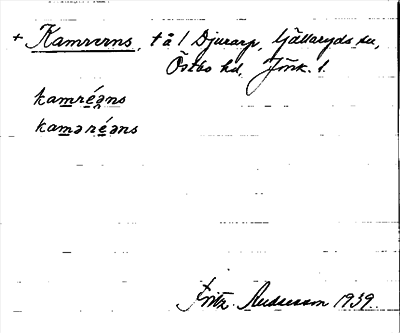 + Kamrerns, t å 1 Djurarp, Gällaryds sn,
Östbo hd, Jönk. l.
kamréəns
kaməréəns
Fritz Andersson 1939.